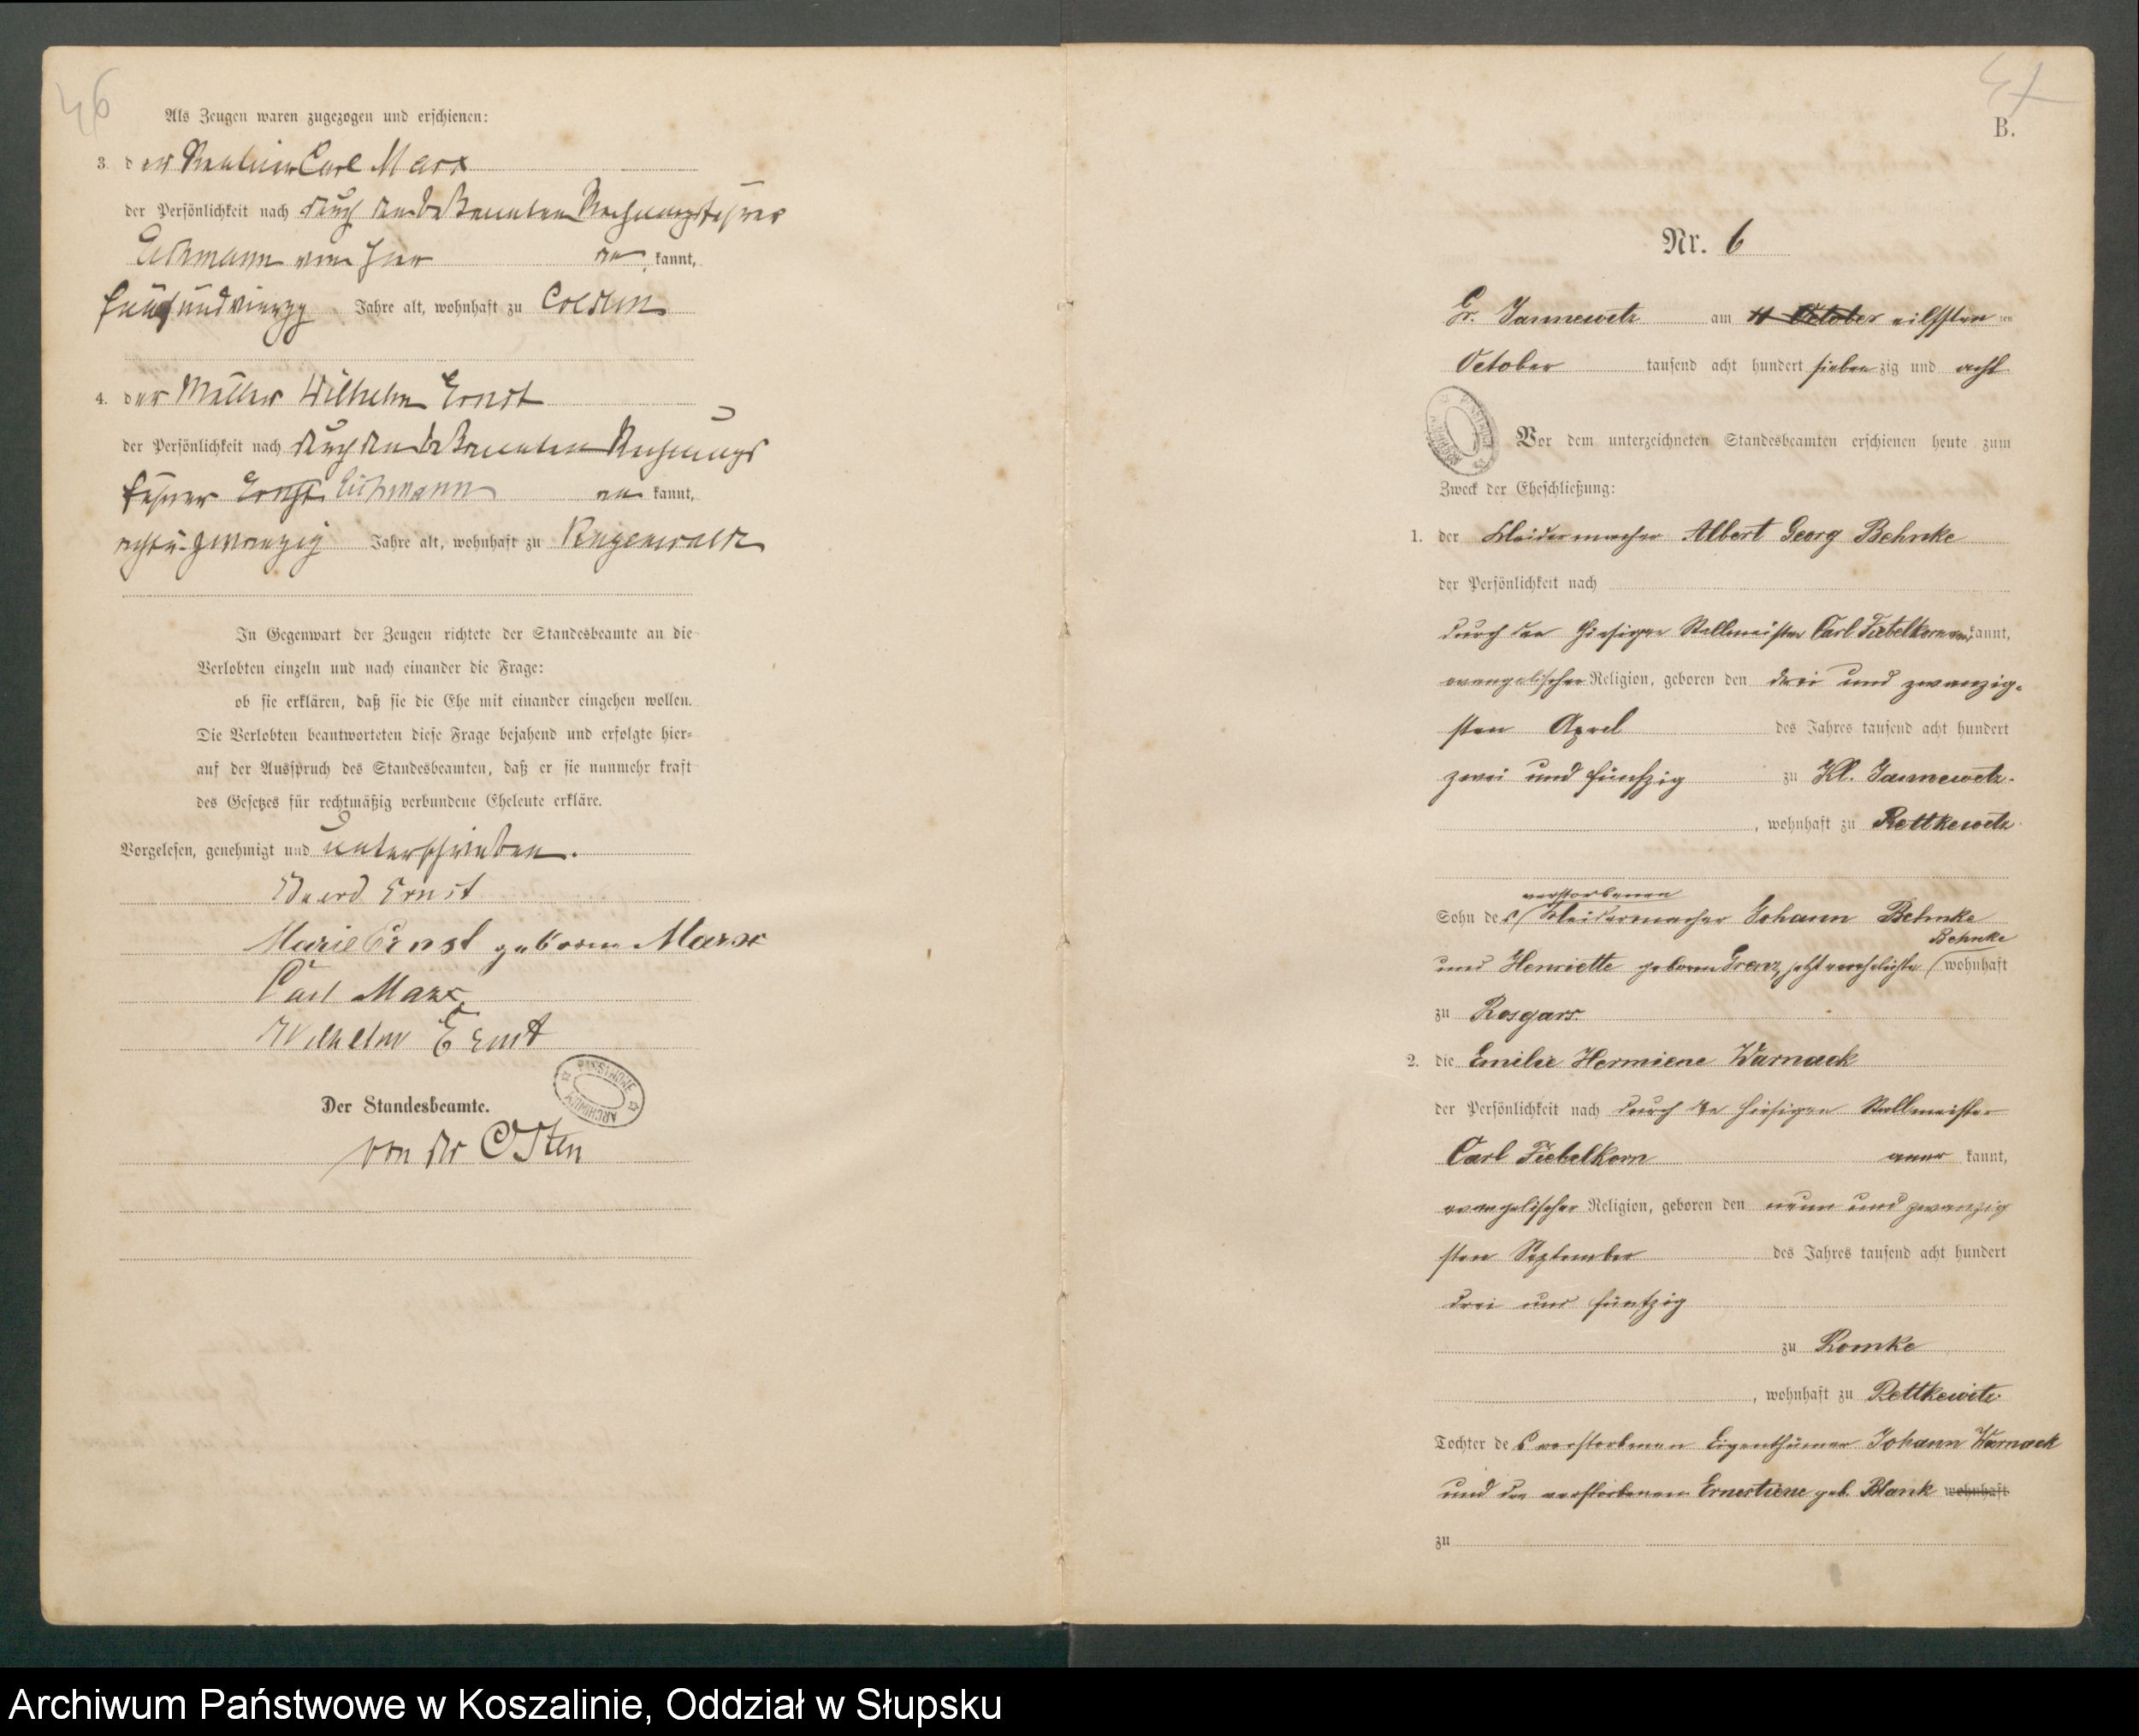 46
Als Zeugen waren zugezogen und erschienen:
3. der Rentier Carl Marx
der Persönlichkeit nach durch den bekannten Rechnungsführer
von hier kannt,
fünfundvierzig Jahre alt, wohnhaft zu Coeslin
4. der Müller Wilhelm Ernst
der Persönlichkeit nach durch den bekannten Rechnungs
führer kannt,
acht u. zwanzig Jahre alt, wohnhaft zu
In Gegenwart der Zeugen richtete der Standesbeamte an die
Verlobten einzeln und nach einander die Frage:
ob sie erklären, daß sie die Ehe mit einander eingehen wollen.
Die Verlobten beantworteten diese Frage bejahend und erfolgte hier-
auf der Ausspruch des Standesbeamten, daß er sie nunmehr kraft
des Gesetzes für rechtmäßig verbundene Eheleute erkläre.
Vorgelesen, genehmigt und unterschrieben.
Eduard Ernst
Marie Ernst geborene Marx
Carl Marx
Wilhelm Ernst
ARCHIWUM PAŃSTWOWE
Der Standesbeamte.
von der Osten
47
B.
Nr. 6
Gr. Jannewetz am 11 October eilfften ten
October tausend acht hundert siebenzig und acht
Vor dem unterzeichneten Standesbeamten erschienen heute zum
Zweck der Eheschließung:
1. der Kleidermacher Albert Georg Behnke
der Persönlichkeit nach
durch den hiesigen Stellmeister Carl Fiebelkorn kannt,
evangelischer Religion, geboren den drei und zwanzig-
sten April des Jahres tausend acht hundert
zwei und fünfzig zu Kl. Jannewetz
, wohnhaft zu Rettkewitz
verstorbenen
Sohn des Kleidermacher Johann Behnke
Behnke
und Henriette geborene Grenz, jetzt verehelichte wohnhaft
zu Rosgars
2. die Emilie Hermiene Warnack
der Persönlichkeit nach durch den hiesigen Stellmeister
Carl Fiebelkorn aner kannt,
evangelischer Religion, geboren den neun und zwanzig
sten September des Jahres tausend acht hundert
drei und fünfzig
zu Romke
, wohnhaft zu Rettkewitz
Tochter des verstorbenen Eigenthümer Johann Warnack
und der verstorbenen Ernestiene geb. Blank wohnhaft
zu
Archiwum Państwowe w Koszalinie, Oddział w Słupsku